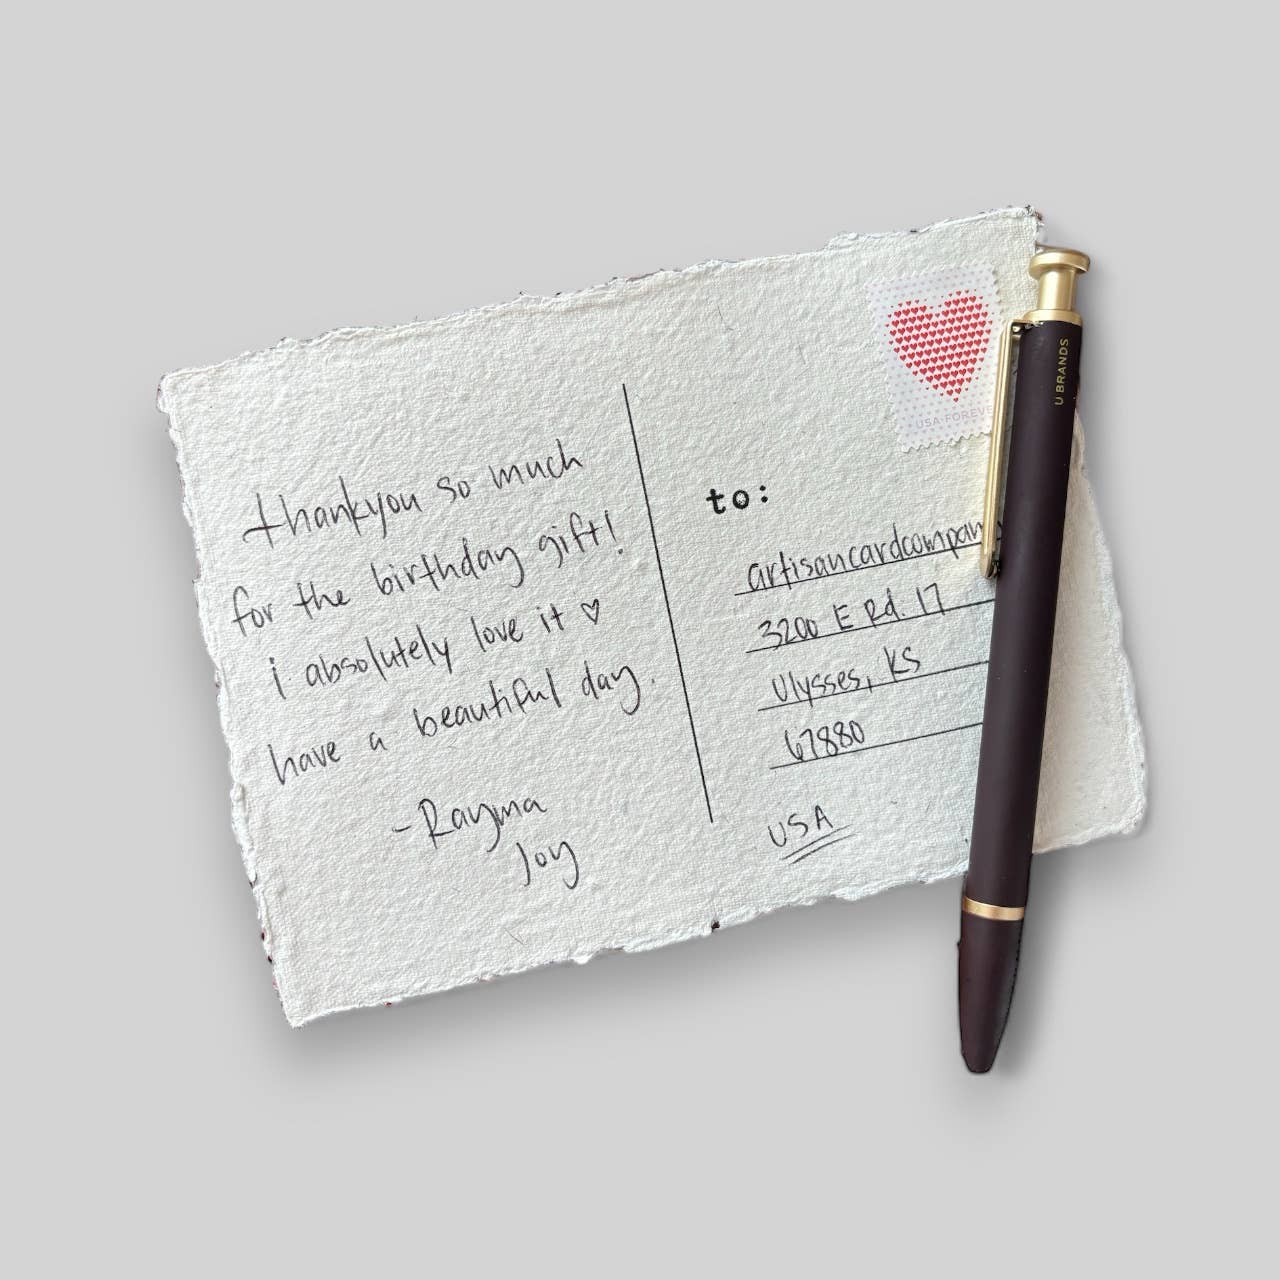 thankyou so much
for the birthday gift!
i absolutely love it ♡
have a beautiful day.
-Rayma
Joy
USA FOREVE
to:
artisancardcompany
3200 E Rd. 17
Ulysses, KS
67880
USA
U BRANDS